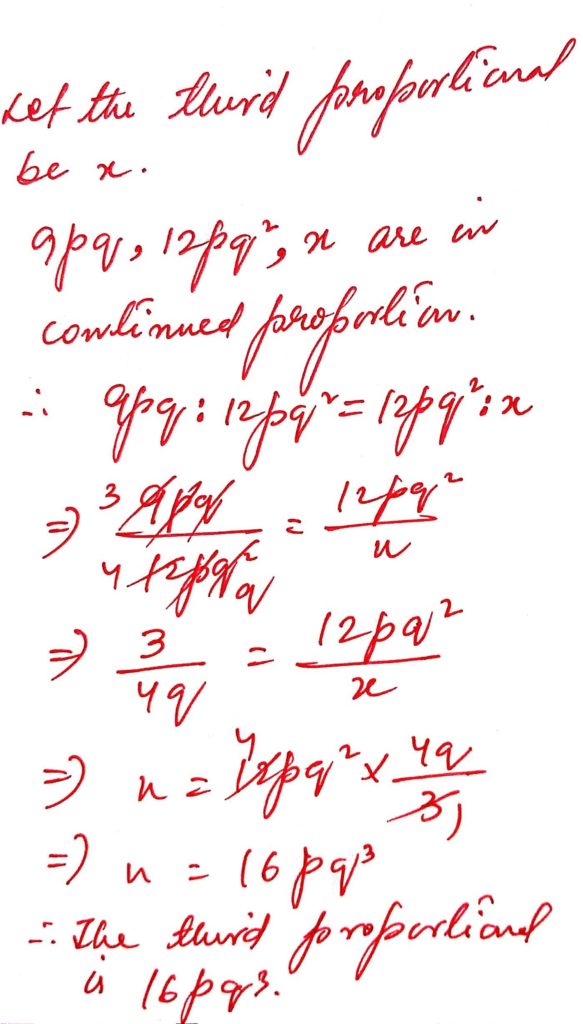 Let the third proportional
be x.
9pq, 12pq², x are in
continued proportion.
∴ 9pq : 12pq² = 12pq² : x
⇒ 3 9pq / 4 12pq² q = 12pq² / x
⇒ 3 / 4q = 12pq² / x
⇒ x = 4 12pq² × 4q / 3 1
⇒ x = 16pq³
∴ The third proportional
is 16pq³.